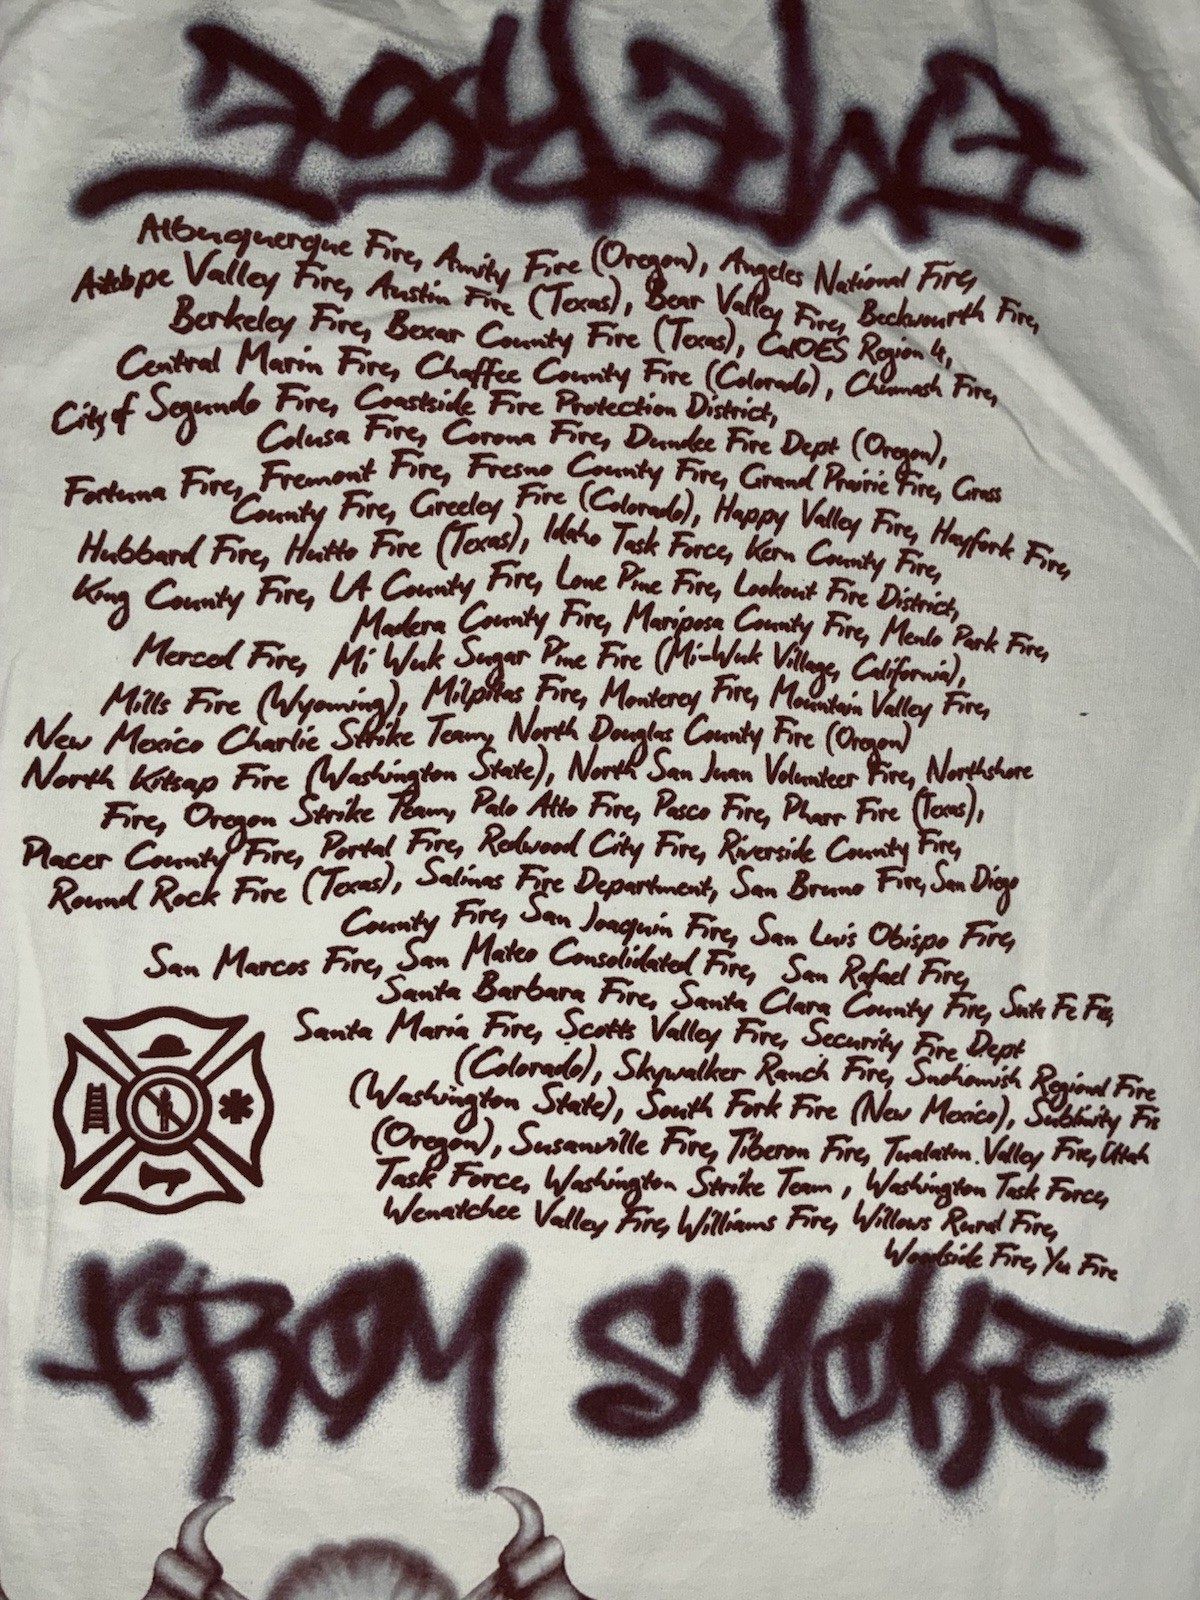 Albuquerque Fire, Amity Fire (Oregon), Angeles National Fire,
Valley Fire, Austin Fire (Texas), Bear Valley Fire, Beckwourth Fire,
Berkeley Fire, Bexar County Fire (Texas), CalOES Region 4,
Central Marin Fire, Chaffee County Fire (Colorado), Chumash Fire,
City of Segundo Fire, Coastside Fire Protection District,
Colusa Fire, Corona Fire, Dundee Fire Dept (Oregon),
Fortuna Fire, Fremont Fire, Fresno County Fire, Grand Prairie Fire, Grass
County Fire, Greeley Fire (Colorado), Happy Valley Fire, Hayfork Fire,
Hubbard Fire, Hutto Fire (Texas), Idaho Task Force, Kern County Fire,
King County Fire, LA County Fire, Lone Pine Fire, Lookout Fire District,
Madera County Fire, Mariposa County Fire, Menlo Park Fire,
Merced Fire, Mi Wuk Sugar Pine Fire (Mi-Wuk Village, California),
Mills Fire (Wyoming), Milpitas Fire, Monterey Fire, Mountain Valley Fire,
New Mexico Charlie Strike Team, North Douglas County Fire (Oregon)
North Kitsap Fire (Washington State), North San Juan Volunteer Fire, Northshore
Fire, Oregon Strike Team, Palo Alto Fire, Pasco Fire, Pharr Fire (Texas),
Placer County Fire, Portal Fire, Redwood City Fire, Riverside County Fire,
Round Rock Fire (Texas), Salinas Fire Department, San Bruno Fire, San Diego
County Fire, San Joaquin Fire, San Luis Obispo Fire,
San Marcos Fire, San Mateo Consolidated Fire, San Rafael Fire,
Santa Barbara Fire, Santa Clara County Fire, Santa Fe Fire,
Santa Maria Fire, Scotts Valley Fire, Security Fire Dept
(Colorado), Skywalker Ranch Fire, Snohomish Regional Fire
(Washington State), South Fork Fire (New Mexico), Sublimity Fire
(Oregon), Susanville Fire, Tiberon Fire, Tualatin Valley Fire, Utah
Task Force, Washington Strike Team, Washington Task Force,
Wenatchee Valley Fire, Williams Fire, Willows Rural Fire,
Woodside Fire, Yu Fire
FROM SMOKE